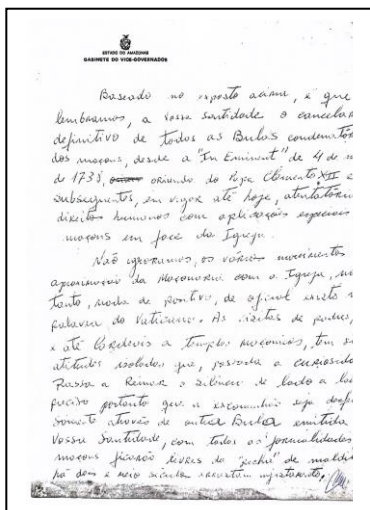 ESTADO DO AMAZONAS
GABINETE DO VICE-GOVERNADOR
Baseado no exposto acima, é que
lembramos, a Vossa Santidade o cancela
definitivo de todas as Bulas condenatór
dos maçons, desde a "In Eminenti" de 4 de
de 1738, oriunda do Papa Clemento XII e
subsequentes, em vigor até hoje, atentatória
direitos humanos com aplicações especiais
maçons em face da Igreja.
Não ignoramos, os vários movimentos
aproximação da Maçonaria com a Igreja,
tanto, nada de positivo, de oficial existe
palavra do Vaticano. As visitas de padres,
e até Cardeais a templos maçônicos, tem
atitudes isoladas que, passada a curiosid
Passa a Reinar o silêncio de lado a la
preciso portanto que a excomunhão seja
Somente através de outra Bula emitida
Vossa Santidade, com todas as formalidades
maçons ficarão livres da "pecha" de maldi
há dois e meio séculos injustamente.